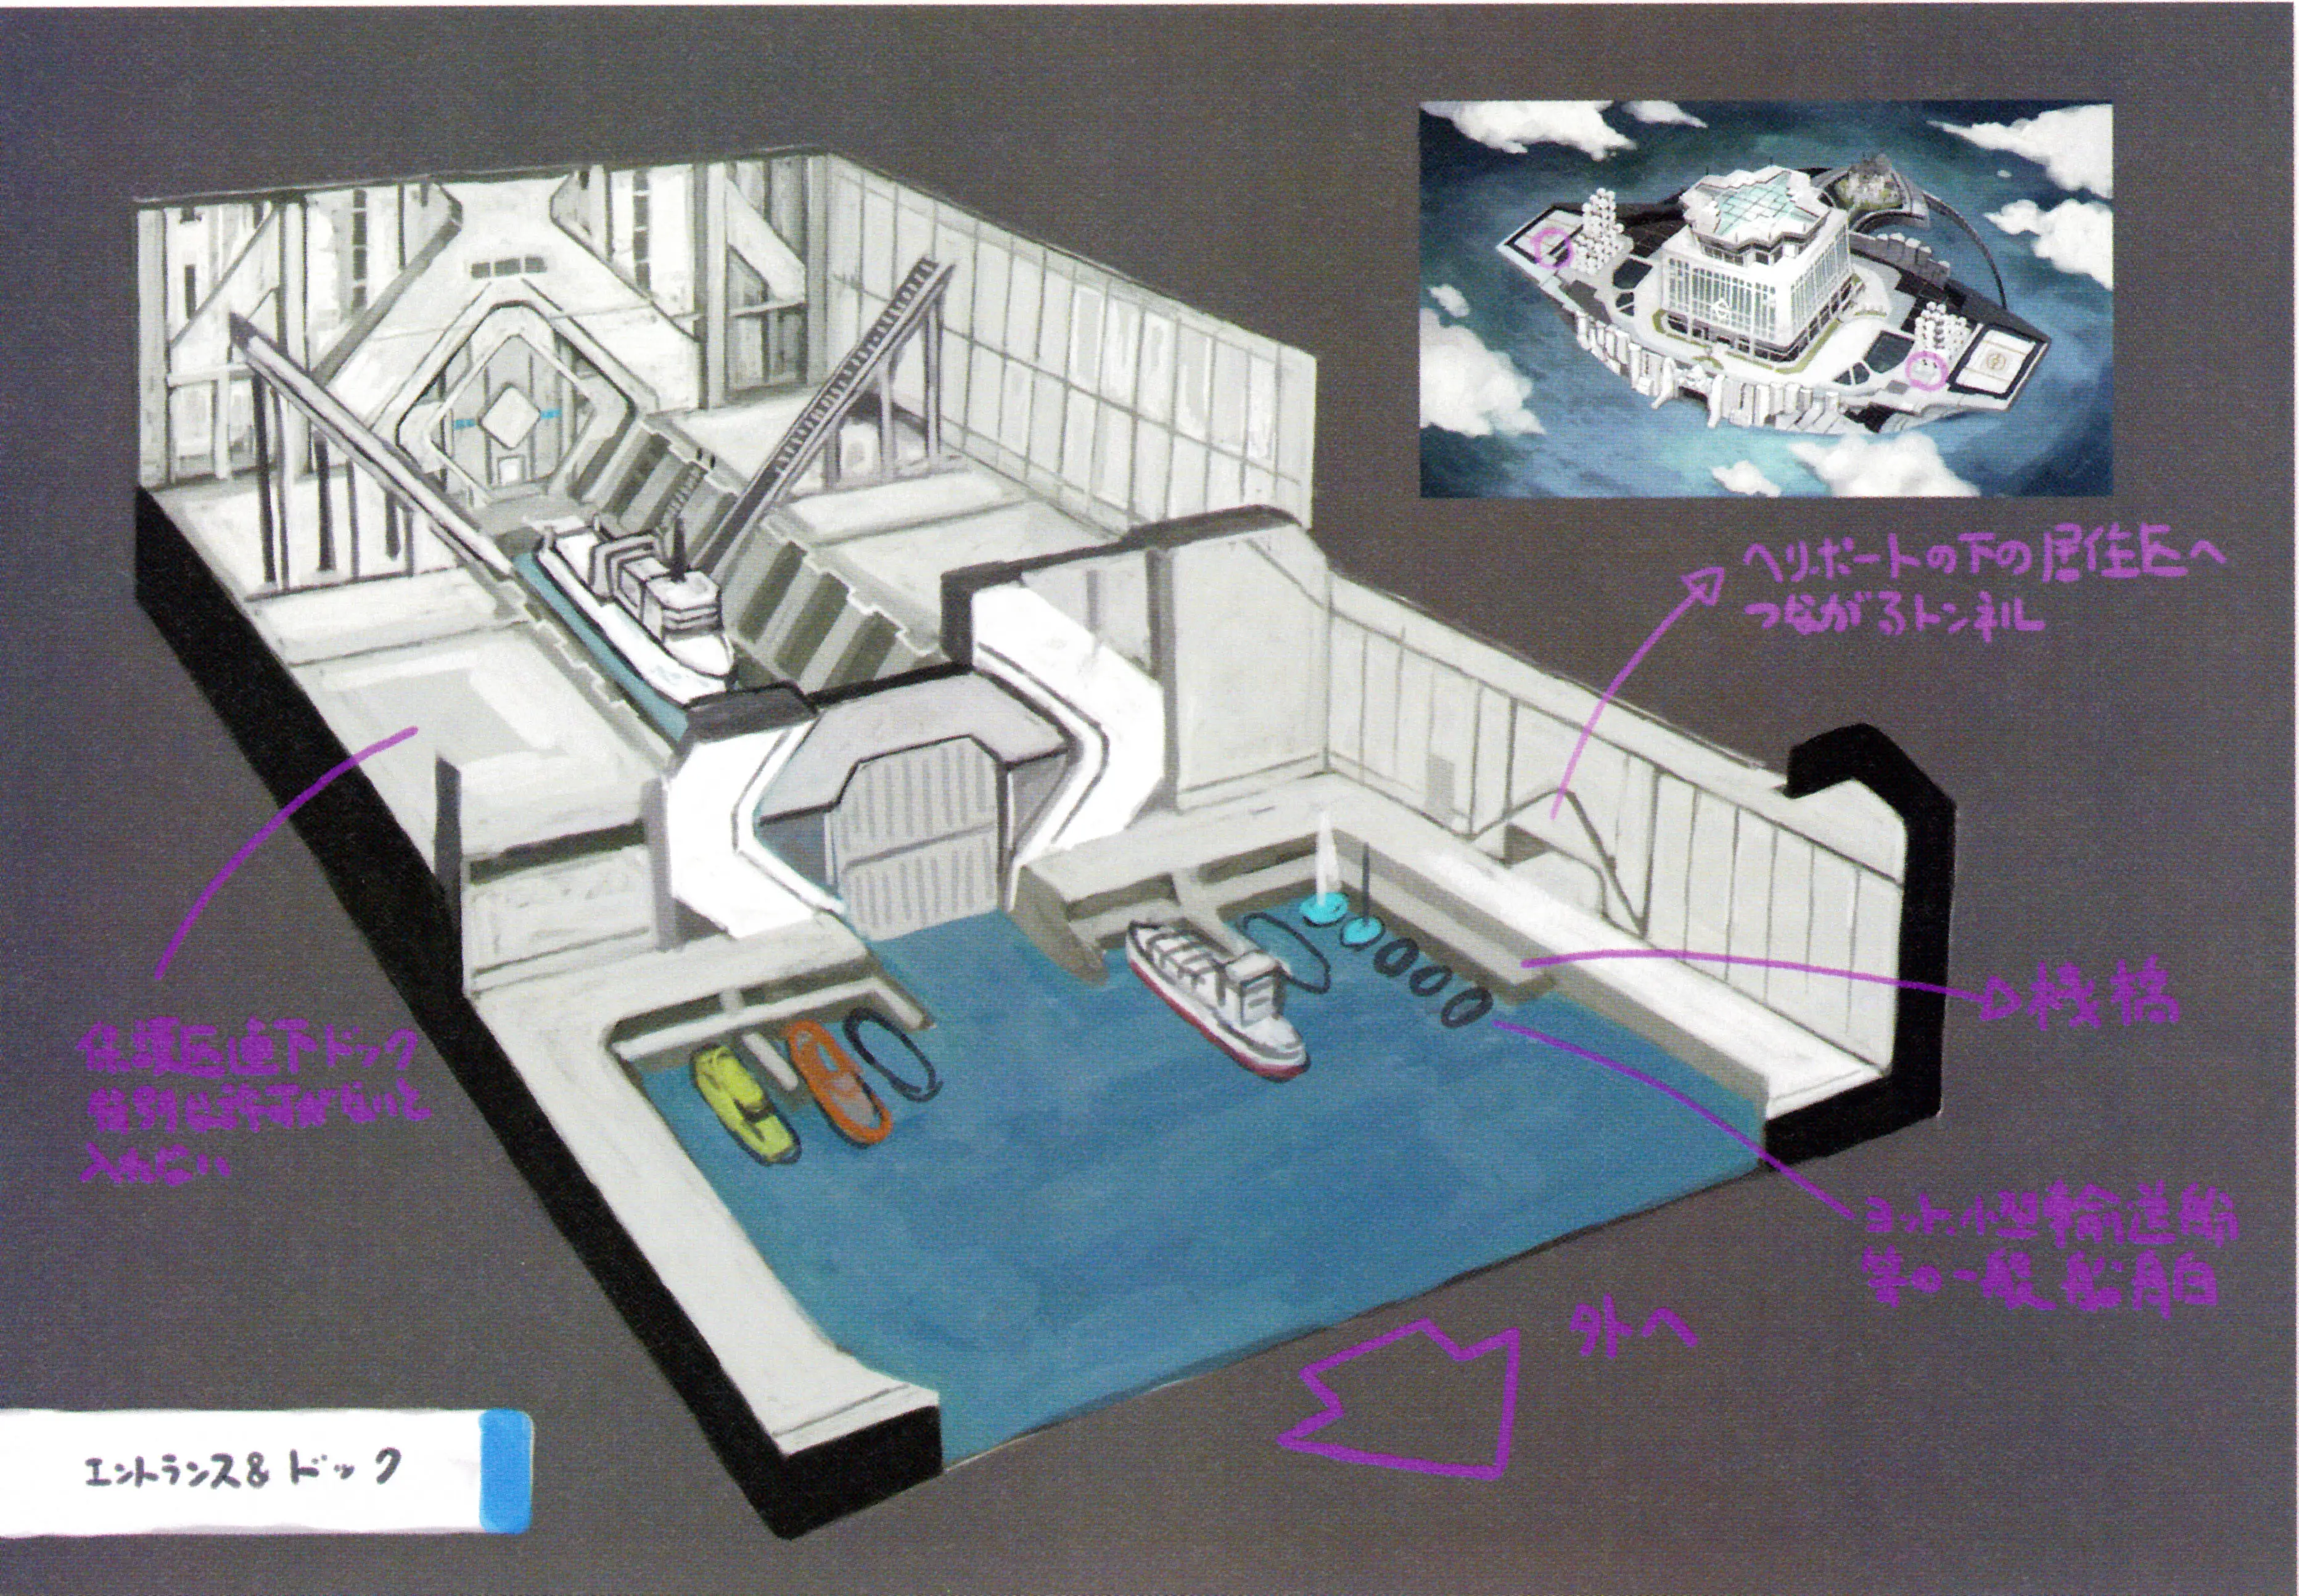 ヘリポートの下の居住区へ
つながるトンネル
桟橋
保護区直下ドック
特別な許可がないと
入れない
ヨット、小型輸送船
等の一般船舶
外へ
エントランス&ドック